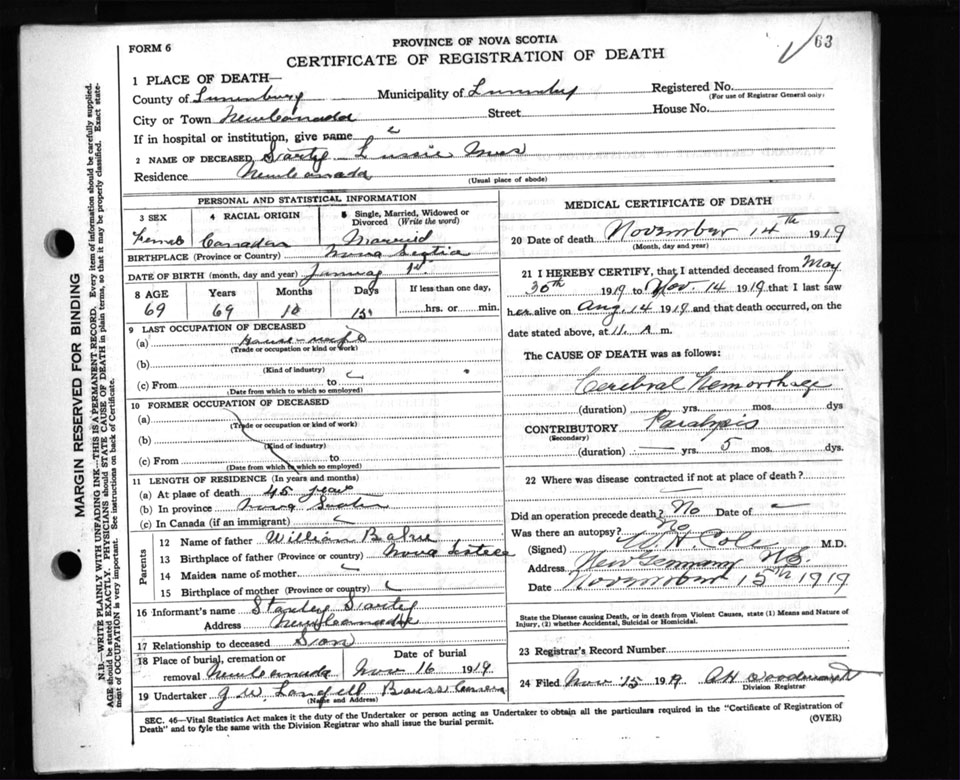 63
FORM 6
PROVINCE OF NOVA SCOTIA
CERTIFICATE OF REGISTRATION OF DEATH
1 PLACE OF DEATH—
County of Lunenburg Municipality of Registered No.
(For use of Registrar General only)
City or Town New Canada Street House No.
If in hospital or institution, give name
2 NAME OF DECEASED Mrs
Residence New Canada
(Usual place of abode)
PERSONAL AND STATISTICAL INFORMATION
3 SEX 4 RACIAL ORIGIN 5 Single, Married, Widowed or Divorced (Write the word)
Female Canadian Married
BIRTHPLACE (Province or Country) Nova Scotia
DATE OF BIRTH (month, day and year)
8 AGE Years Months Days If less than one day,
69 69 10 15 hrs. or min.
9 LAST OCCUPATION OF DECEASED
(a) House-wife
(Trade or occupation or kind or work)
(b)
(Kind of industry)
(c) From to
(Date from which to which so employed)
10 FORMER OCCUPATION OF DECEASED
(a)
(Trade or occupation or kind of work)
(b)
(Kind of industry)
(c) From to
(Date from which to which so employed)
11 LENGTH OF RESIDENCE (In years and months)
(a) At place of death 45 years
(b) In province Nova Scotia
(c) In Canada (if an immigrant)
Parents
12 Name of father William
13 Birthplace of father (Province or country) Nova Scotia
14 Maiden name of mother
15 Birthplace of mother (Province or country)
16 Informant's name Stanley
Address New Canada
17 Relationship to deceased Son
18 Place of burial, cremation or removal New Canada Date of burial Nov 16 1919
19 Undertaker J. W.
(Name and Address)
MEDICAL CERTIFICATE OF DEATH
20 Date of death November 14th 1919
(Month, day and year)
21 I HEREBY CERTIFY, that I attended deceased from May
30th 1919 to Nov. 14 1919 that I last saw
her alive on Aug. 14 1919 and that death occurred, on the
date stated above, at 11 a m.
The CAUSE OF DEATH was as follows:
Cerebral Hemorrhage
(duration) yrs. mos. dys
CONTRIBUTORY Paralysis
(Secondary)
(duration) yrs. 5 mos. dys.
22 Where was disease contracted if not at place of death?
Did an operation precede death? No Date of
Was there an autopsy? No
(Signed) W. H. Cole M.D.
Address New Germany N.S.
Date November 15th 1919
State the Disease causing Death, or in death from Violent Causes, state (1) Means and Nature of
Injury, (2) whether Accidental, Suicidal or Homicidal.
23 Registrar's Record Number
24 Filed Nov 15 1919
Division Registrar
SEC. 46—Vital Statistics Act makes it the duty of the Undertaker or person acting as Undertaker to obtain all the particulars required in the "Certificate of Registration of
Death" and to fyle the same with the Division Registrar who shall issue the burial permit.
(OVER)
MARGIN RESERVED FOR BINDING
N.B.—WRITE PLAINLY WITH UNFADING INK—THIS IS A PERMANENT RECORD. Every item of information should be carefully supplied.
AGE should be stated EXACTLY. PHYSICIANS should STATE CAUSE OF DEATH in plain terms, so that it may be properly classified. Exact state-
ment of OCCUPATION is very important. See instructions on back of Certificate.